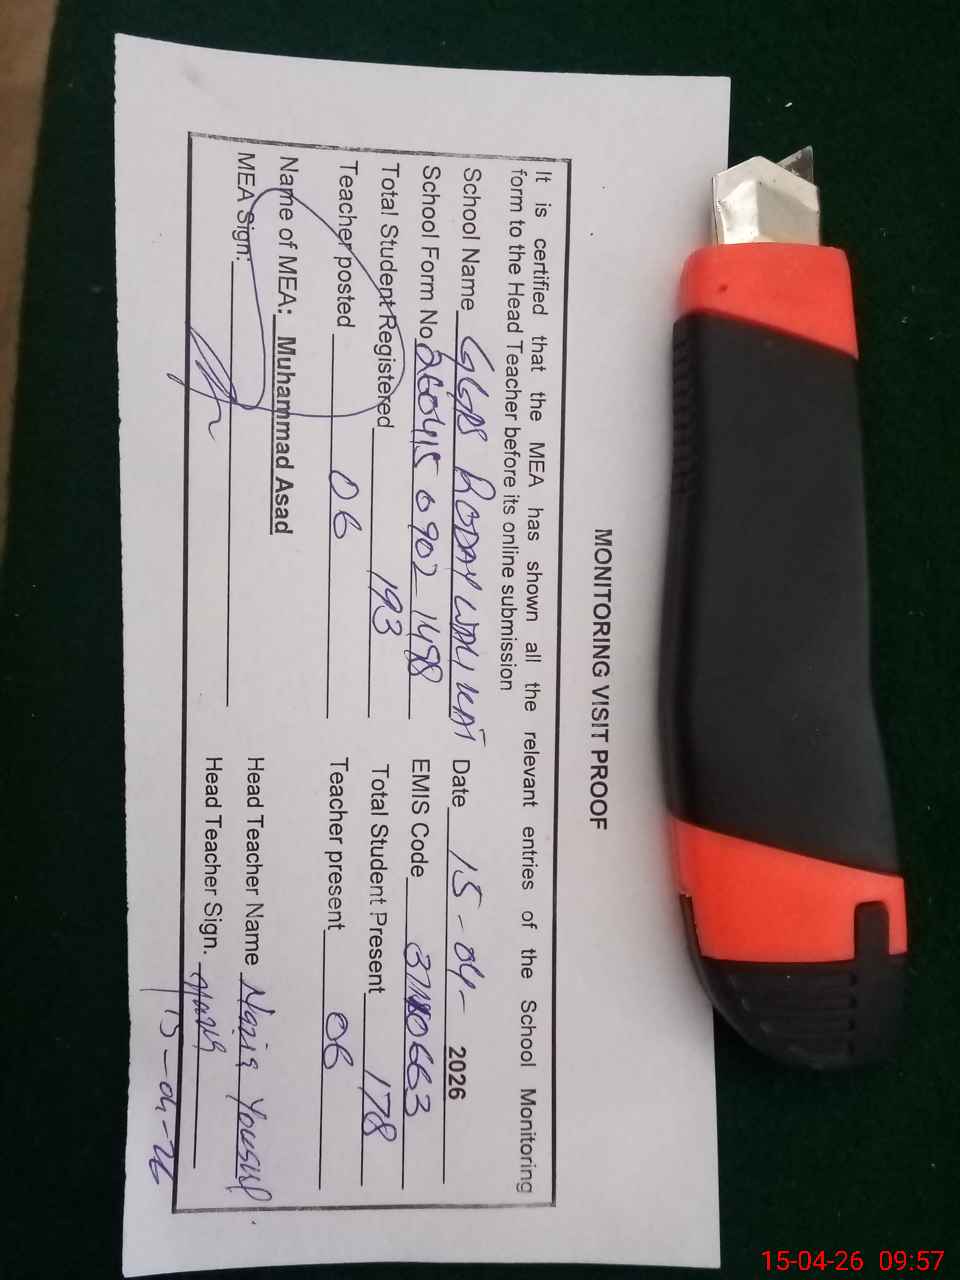 MONITORING VISIT PROOF
It is certified that the MEA has shown all the relevant entries of the School Monitoring
form to the Head Teacher before its online submission
School Name GGPS RODAY WALI KAT Date 15-04- 2026
School Form No 260415 0902 1488 EMIS Code
Total Student Registered 193 Total Student Present 178
Teacher posted 06 Teacher present 06
Name of MEA: Muhammad Asad Head Teacher Name Nazia Yousuf
MEA Sign: Head Teacher Sign.
15-04-26
15-04-26 09:57